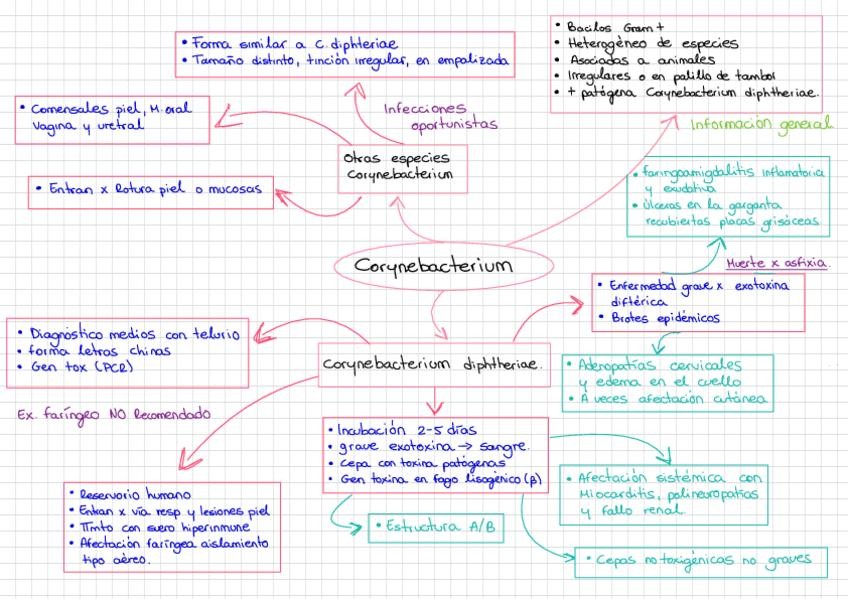 • Forma similar a C. diphteriae
• Tamaño distinto, tinción irregular, en empalizada
• Bacilos Gram +
• Heterogéneo de especies
• Asociadas a animales
• Irregulares o en palillo de tambor
• + patógena Corynebacterium diphtheriae.
Información general
• Comensales piel, M. oral
Vagina y uretral
Infecciones
oportunistas
Otras especies
Corynebacterium
• Entran x Rotura piel o mucosas
• faringoamigdalitis inflamatoria
y exudativa
• Úlceras en la garganta
recubiertas placas grisáceas.
Corynebacterium
Muerte x asfixia.
• Enfermedad grave x exotoxina
diftérica
• Brotes epidémicos
• Diagnóstico medios con telurio
• forma letras chinas
• Gen tox (PCR)
Corynebacterium diphtheriae.
• Adenopatías cervicales
y edema en el cuello
• A veces afectación cutánea
Ex. faríngeo NO Recomendado
• Incubación 2-5 días
• grave exotoxina → sangre.
• Cepa con toxina patógenas
• Gen toxina en fago lisogénico (β)
• Reservorio humano
• Entran x vía resp y lesiones piel
• Ttnto con suero hiperinmune
• Afectación faríngea aislamiento
tipo aéreo.
• Estructura A/B
• Afectación sistémica con
Miocarditis, polineuropatías
y fallo renal.
• Cepas no toxigénicas no graves